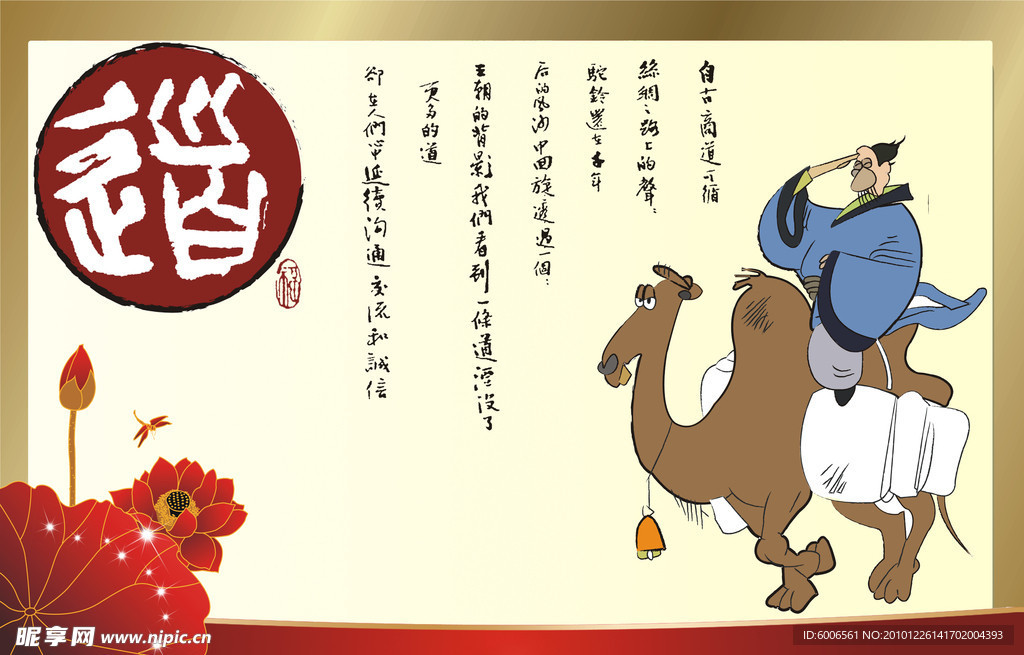 道
自古商道可循
絲綢之路上的聲:
駝鈴還在千年
后的風沙中回旋邊過一個:
王朝的背影我們看到一條道湮没了
更多的道
卻在人們中延續沟通交流和誠信
昵享网 www.nipic.cn
ID:6006561 NO:20101226141702004393